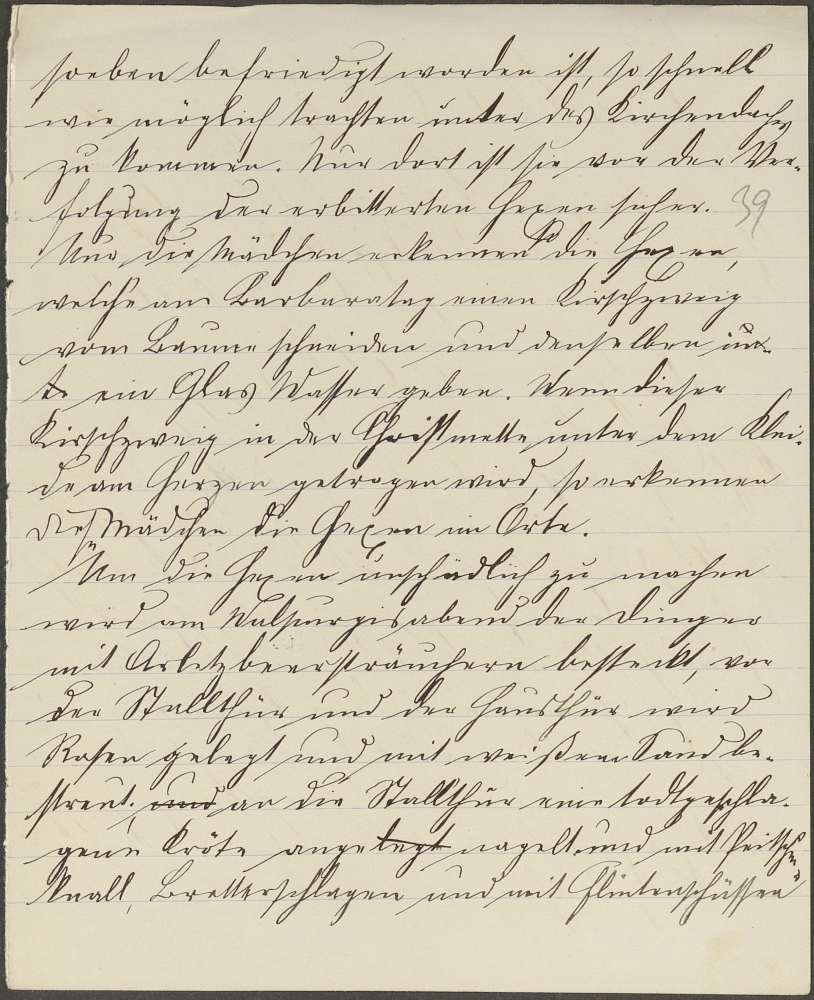 soeben befriedigt worden ist, so schnell
wie möglich trachten unter das Kirchendach
zu kommen. Nur dort ist sie vor der Ver-
folgung der erbitterten Hexen sicher. 39
Nur die Mädchen erkennen so die Hexen,
welche am Barbaratag einen Kirschzweig
vom Baume schneiden und denselben in
ein Glas Wasser geben. Wenn dieser
Kirschzweig in der Christmette unter dem Klei-
de am Herzen getragen wird, so erkennen
die Mädchen die Hexen im Orte.
Um die Hexen unschädlich zu machen
wird am Walpurgisabend der Dünger
mit Arletzbeersträuchern besteckt, vor
der Stallthür und der Hausthür wird
Rasen gelegt und mit weißem Sand be-
streut, und an die Stallthür eine todtgeschla-
gene Kröte angelegt nagelt und mit Peitschen-
knall, Bretterschlagen und mit Flintenschüssen